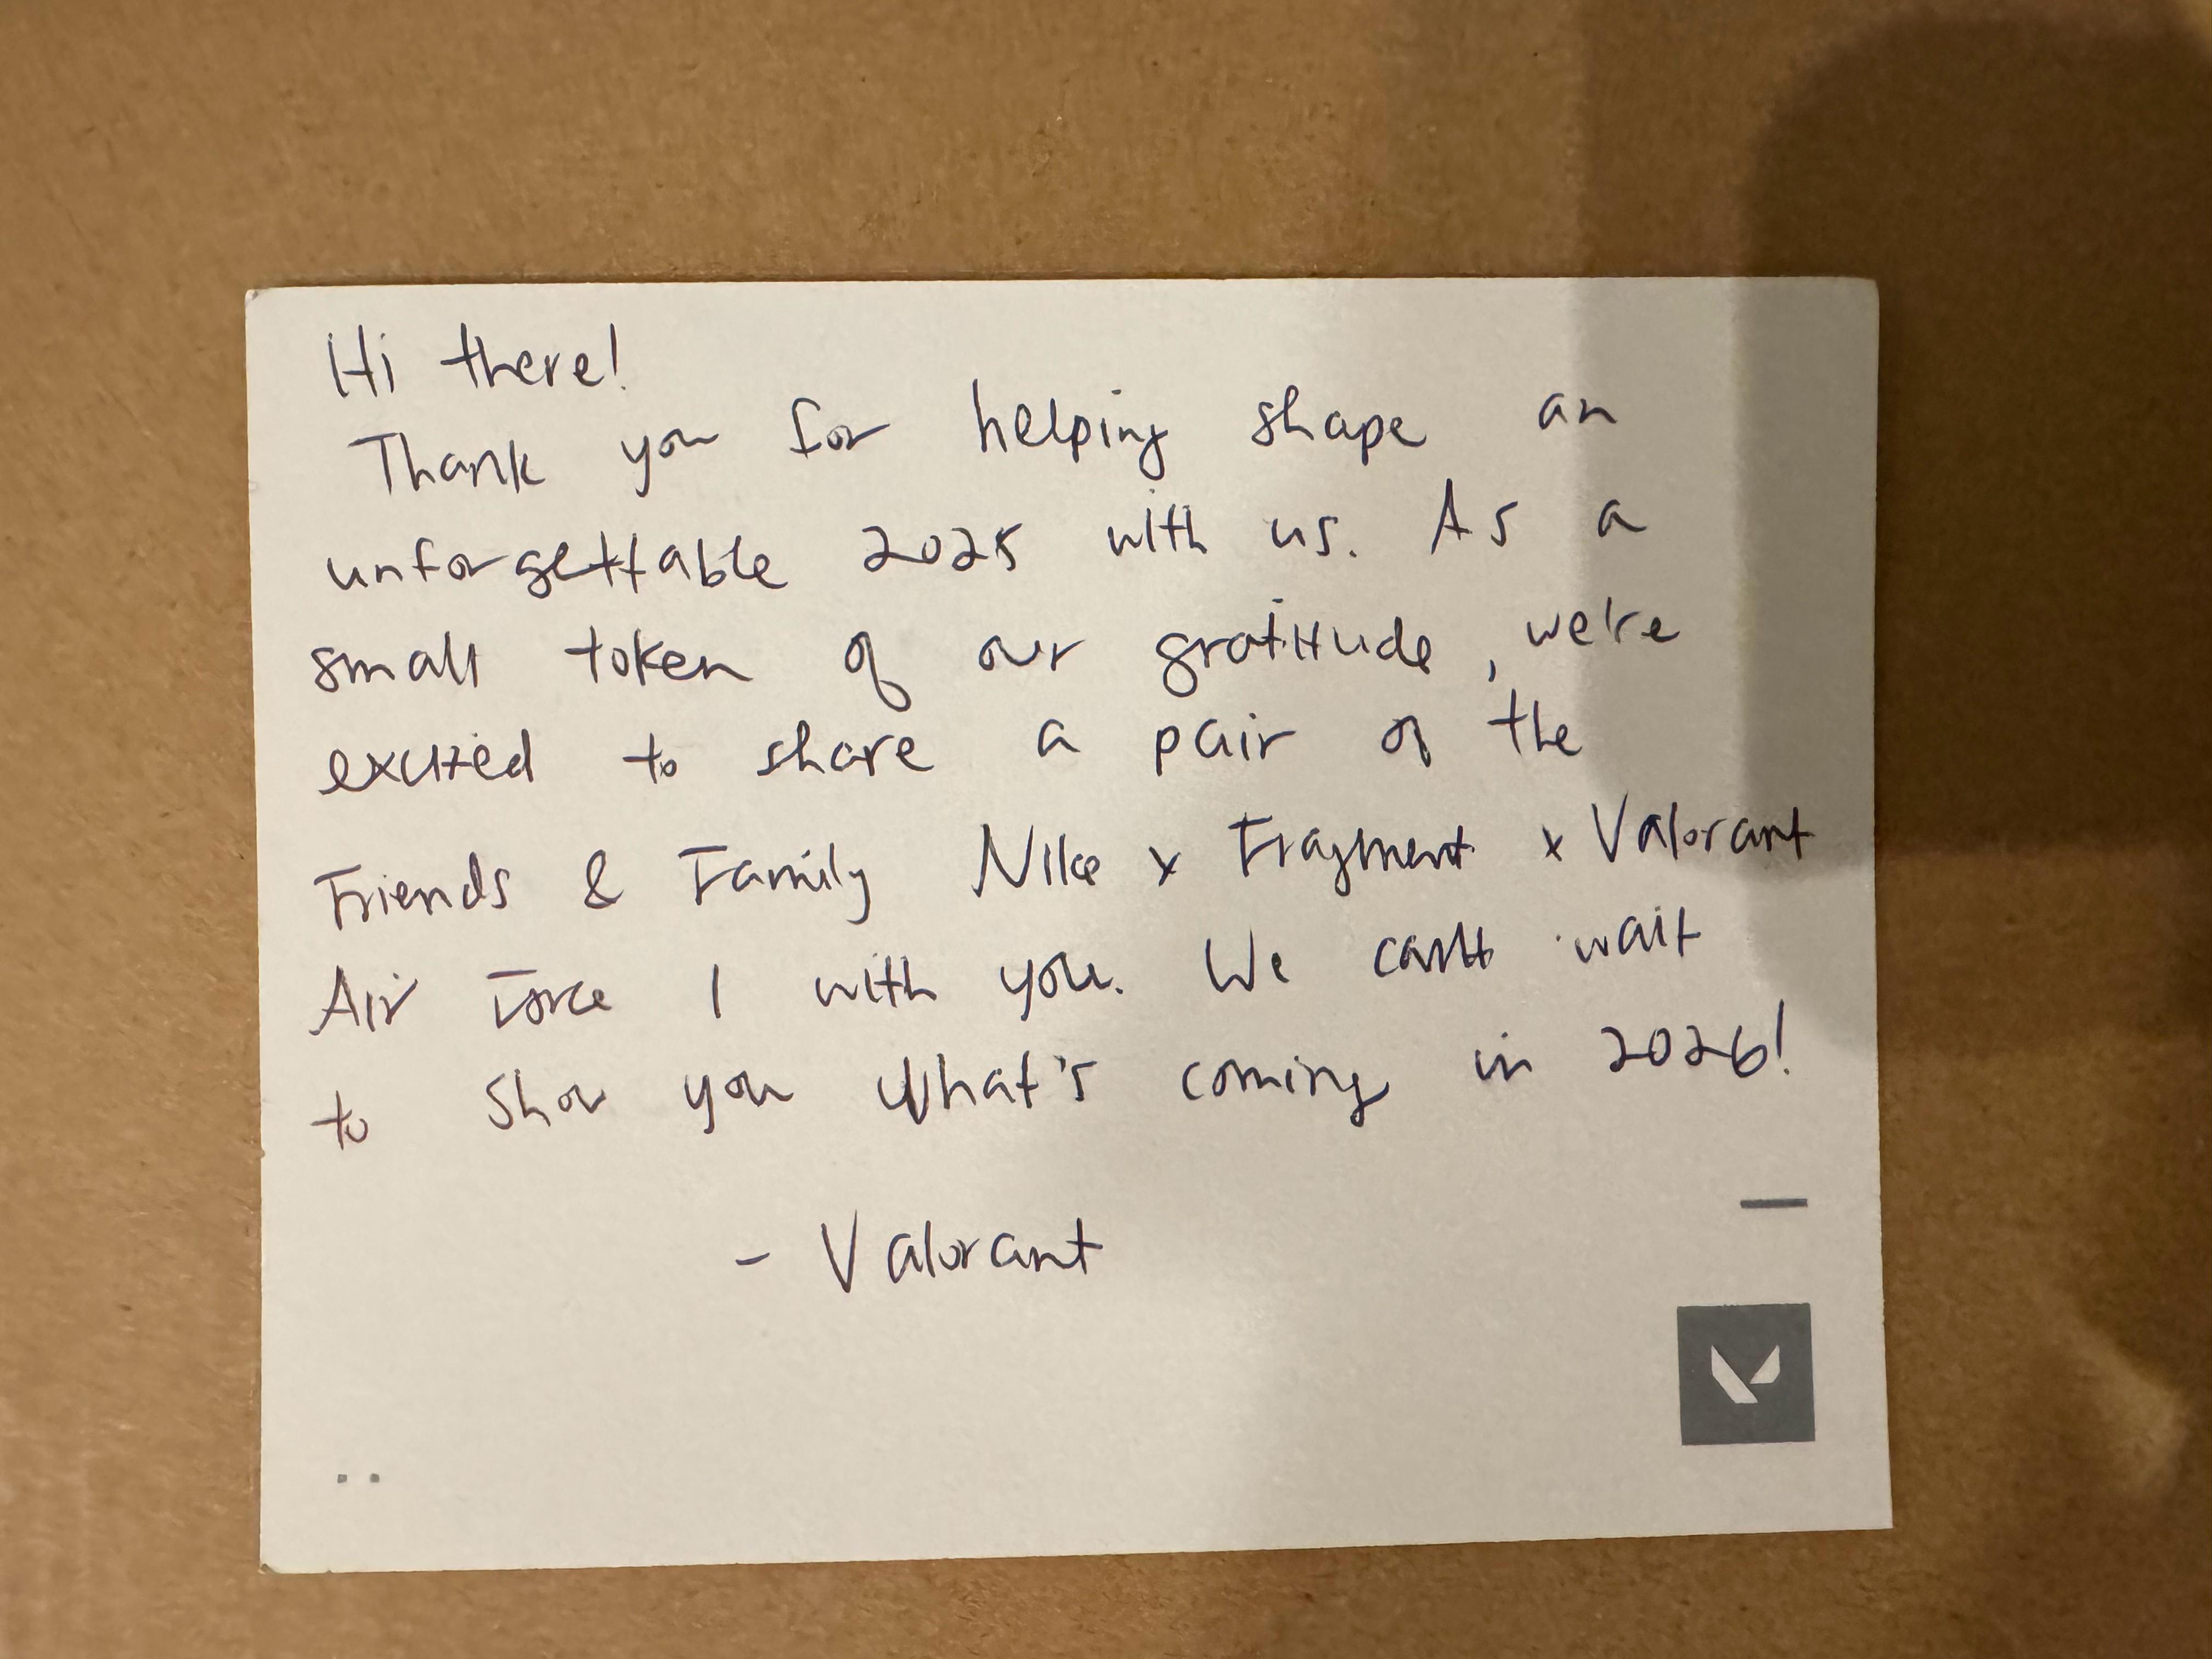 Hi there!
Thank you for helping shape an
unforgettable 2025 with us. As a
small token of our gratitude, we're
excited to share a pair of the
Friends & Family Nike x Fragment x Valorant
Air Force 1 with you. We can't wait
to show you what's coming in 2026!
- Valorant